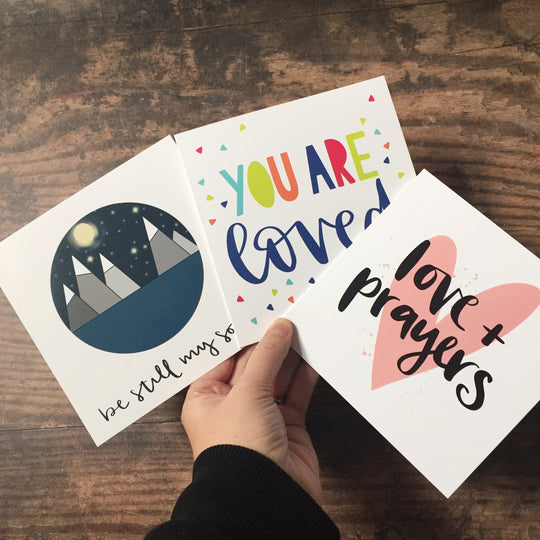 be still my so
YOU ARE
loved
love +
prayers